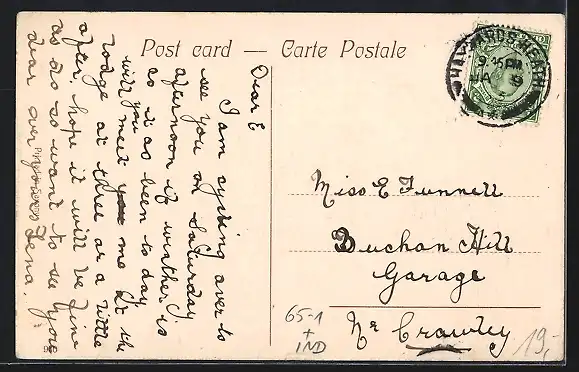 Post card — Carte Postale
HAYWARDS HEATH
9.45 PM
JA 9
Dear E
I am cycling over to
see you on Saturday
afternoon if weather is
as it as been to day
will you meet me at the
lodge at three or a little
after hope it will be fine
as do so want to see you
dear ever yours Lena.
Miss E Funnell
Buchan Hill
Garage
Nr Crawley
65-1
+
IND
19,-